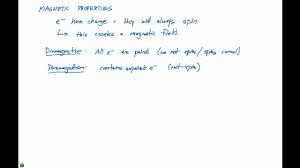 MAGNETIC PROPERTIES
e⁻ have charge + they will always spin
↳ this creates a magnetic field.
Diamagnetism: All e⁻ are paired (no net spin / spins cancel)
Paramagnetism: contains unpaired e⁻ (net spin)